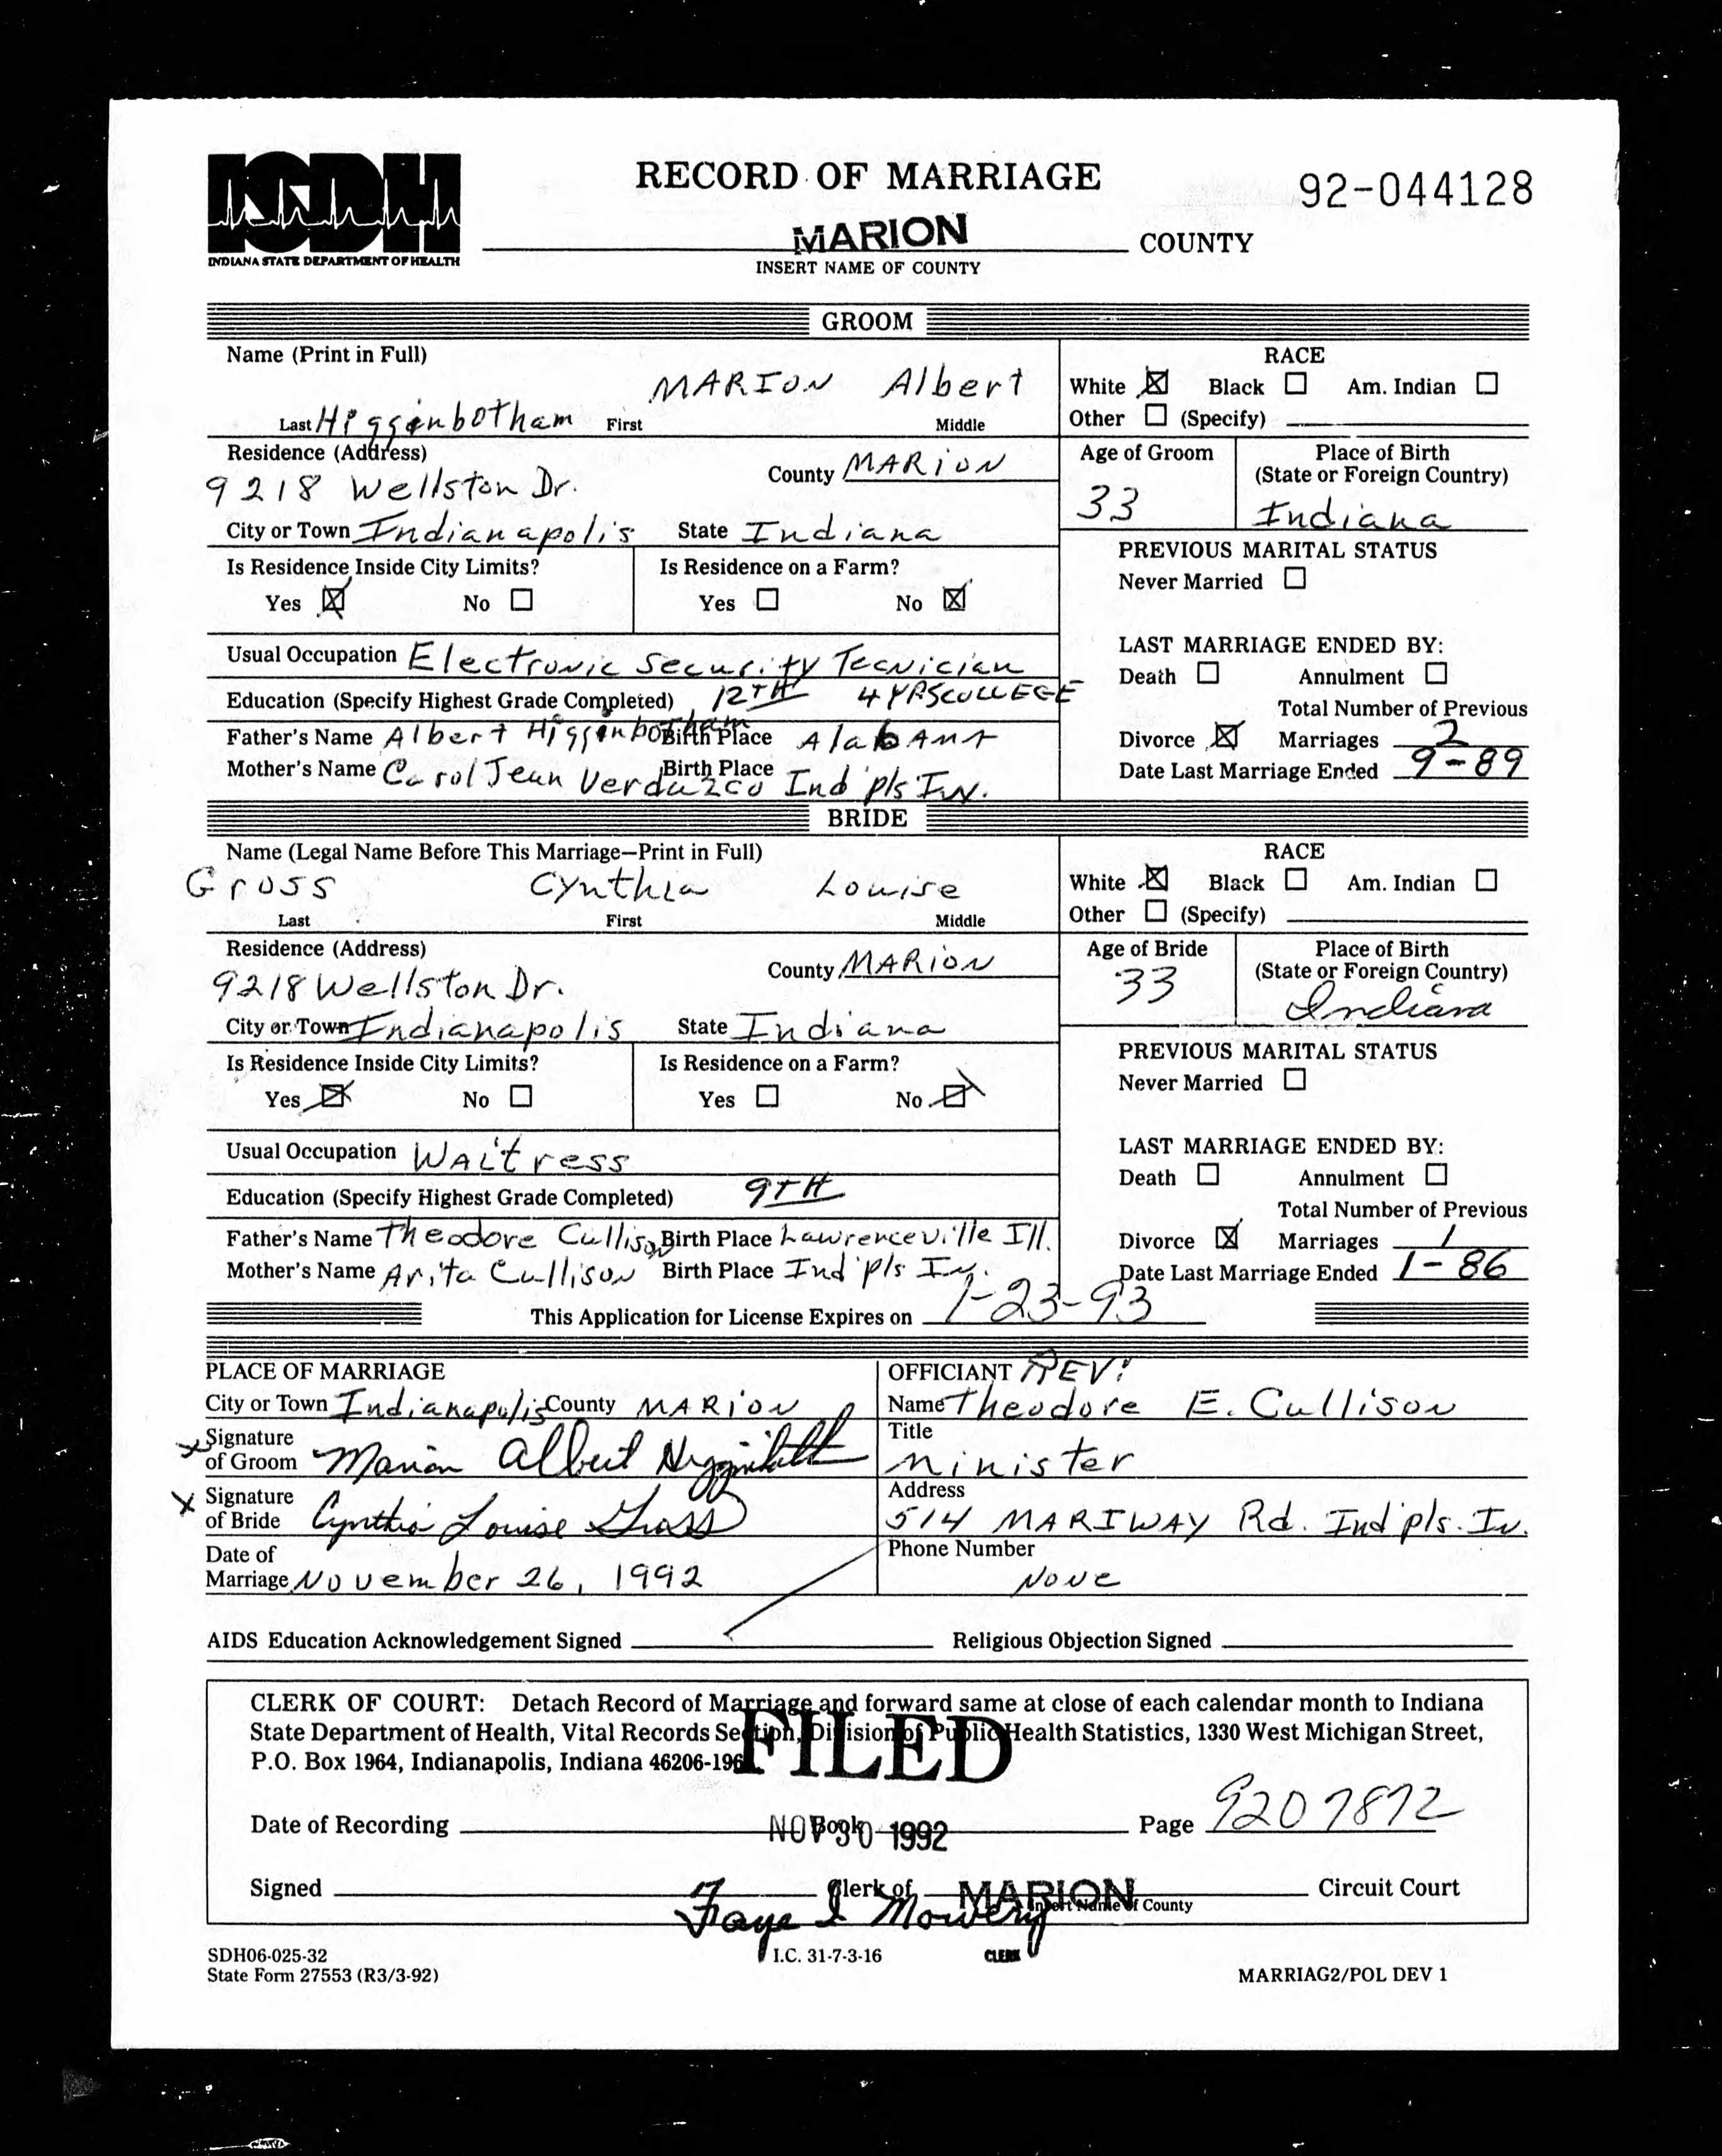 ISDH
INDIANA STATE DEPARTMENT OF HEALTH
RECORD OF MARRIAGE
92-044128
MARION COUNTY
INSERT NAME OF COUNTY
GROOM
Name (Print in Full)
MARION Albert
Last Higginbotham First Middle
RACE
White ☒ Black ☐ Am. Indian ☐
Other ☐ (Specify)
Residence (Address)
9218 Wellston Dr. County MARION
City or Town Indianapolis State Indiana
Age of Groom
33
Place of Birth
(State or Foreign Country)
Indiana
Is Residence Inside City Limits?
Yes ☒ No ☐
Is Residence on a Farm?
Yes ☐ No ☒
PREVIOUS MARITAL STATUS
Never Married ☐
Usual Occupation Electronic Security Tecnician
Education (Specify Highest Grade Completed) 12TH 4 YRSCOLLEGE
Father's Name Albert Higginbotham Birth Place AlabAmA
Mother's Name Carol Jean Verduzco Birth Place Ind'pls IN.
LAST MARRIAGE ENDED BY:
Death ☐ Annulment ☐
Total Number of Previous
Divorce ☒ Marriages 2
Date Last Marriage Ended 9-89
BRIDE
Name (Legal Name Before This Marriage—Print in Full)
Gross Cynthia Louise
Last First Middle
RACE
White ☒ Black ☐ Am. Indian ☐
Other ☐ (Specify)
Residence (Address)
9218 Wellston Dr. County MARION
City or Town Indianapolis State Indiana
Age of Bride
33
Place of Birth
(State or Foreign Country)
Indiana
Is Residence Inside City Limits?
Yes ☒ No ☐
Is Residence on a Farm?
Yes ☐ No ☒
PREVIOUS MARITAL STATUS
Never Married ☐
Usual Occupation WAitress
Education (Specify Highest Grade Completed) 9TH
Father's Name Theodore Cullison Birth Place Lawrenceville Ill.
Mother's Name Arita Cullison Birth Place Ind'pls IN.
LAST MARRIAGE ENDED BY:
Death ☐ Annulment ☐
Total Number of Previous
Divorce ☒ Marriages 1
Date Last Marriage Ended 1-86
This Application for License Expires on 1-23-93
PLACE OF MARRIAGE
City or Town Indianapolis County MARION
x Signature
of Groom Marion Albert Higginbotham
x Signature
of Bride Cynthia Louise Gross
Date of
Marriage November 26, 1992
OFFICIANT REV.
Name Theodore E. Cullison
Title
Minister
Address
514 MARIWAY Rd. Ind'pls. IN.
Phone Number
NONE
AIDS Education Acknowledgement Signed Religious Objection Signed
CLERK OF COURT: Detach Record of Marriage and forward same at close of each calendar month to Indiana
State Department of Health, Vital Records Section, Division of Public Health Statistics, 1330 West Michigan Street,
P.O. Box 1964, Indianapolis, Indiana 46206-196
FILED
Date of Recording NOV 30 1992 Book Page 9207872
Signed Faye I Mowery Clerk of MARION Circuit Court
Insert Name of County
CLERK
SDH06-025-32
State Form 27553 (R3/3-92)
I.C. 31-7-3-16
MARRIAG2/POL DEV 1